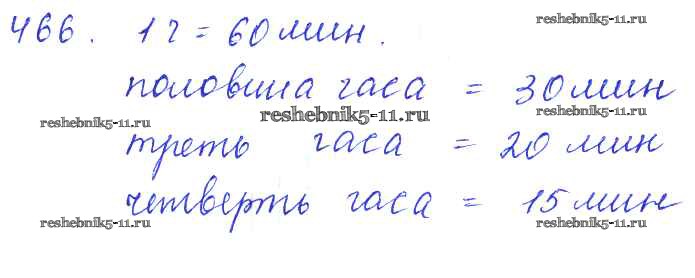 466. 1 ч = 60 мин.
reshebnik5-11.ru
половина часа = 30 мин
reshebnik5-11.ru
reshebnik5-11.ru
reshebnik5-11.ru
треть часа = 20 мин
четверть часа = 15 мин
reshebnik5-11.ru
reshebnik5-11.ru